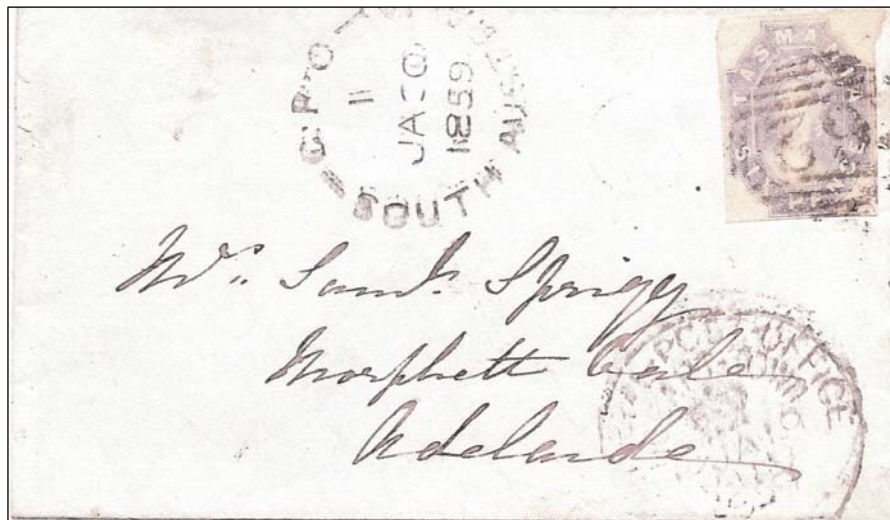 G.P.O.
SOUTH AUSTRALIA
11
JA
1859
TASMANIA
SIX PENCE
Mrs. Saml. Sprigg
Morphett Vale
Adelaide
POST OFFICE